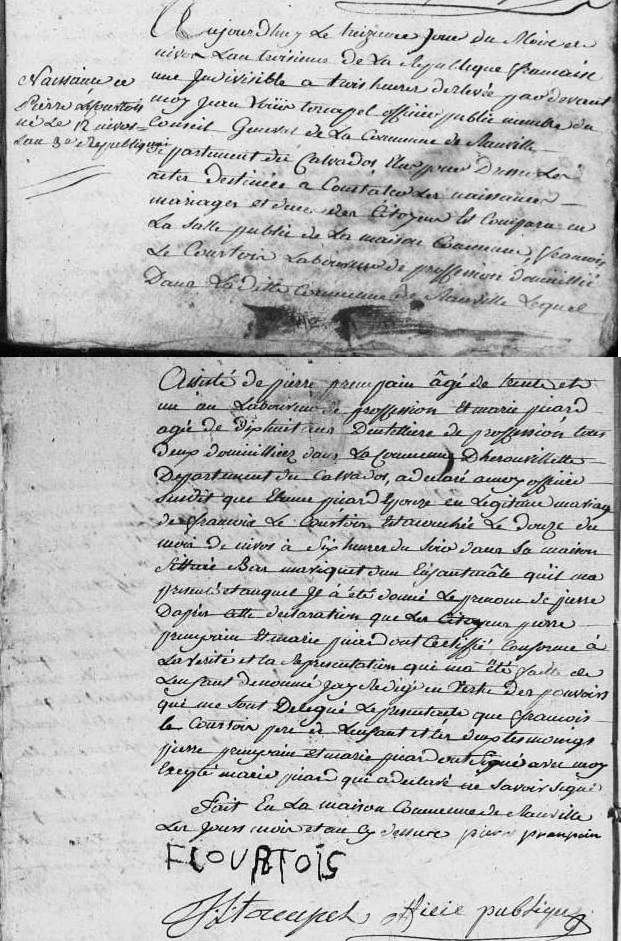 Naissance de
Pierre LeCourtois
né le 12 nivos
Lan 3e Republique
Aujourdhuy Le treizieme Jour du Mois de
nivos Lan troisieme de La Republique francaise
une Indivisible a trois heures de relevée par devant
moy Jean officier public membre du
Conseil General de La Commune de
Departement du Calvados Elu pour Dresser Les
actes destinées a Constater Les naissances
mariages et deces des Citoyens Est Comparu en
La Salle public de La maison Commune, francois
Le Courtois Laboureur de proffession domicillié
Dans La ditte Commune de Lequel
Assisté de pierre prempain âgé de trente et
un an Laboureur de proffession Et marie picard
agé de dixhuit ans Dentelliere de proffession tous
deux domicilliez dans La Commune Dherouvillette
Departement du Calvados, a declaré a moy officier
Susdit que picard Epouze en Legitime mariage
de francois Le Courtois Est acouchée Le douze du
mois de nivos à Six heures du Soir dans Sa maison
Sittuée dun Enfant mâle quil ma
presenté et auquel Je à été donné Le prenom de pierre
Dapres cette declaration que Les Citoyens pierre
prempain Et marie picard ont Certiffié Conforme à
La verité et La representation qui ma été faitte de
Lenfant denommé Jay Redigé en Vertu des pouvoirs
qui me Sont Delegué Le present acte que francois
Le Courtois pere de Lenfant et Les deux temoings
pierre prempain Et marie picard ont Signé avec moy
Excepté marie picard qui a declaré ne Savoir Signé
Fait En La maison Commune de
Les Jours mois et an Cy dessus pierre prempain
F COURTOIS
officié publique